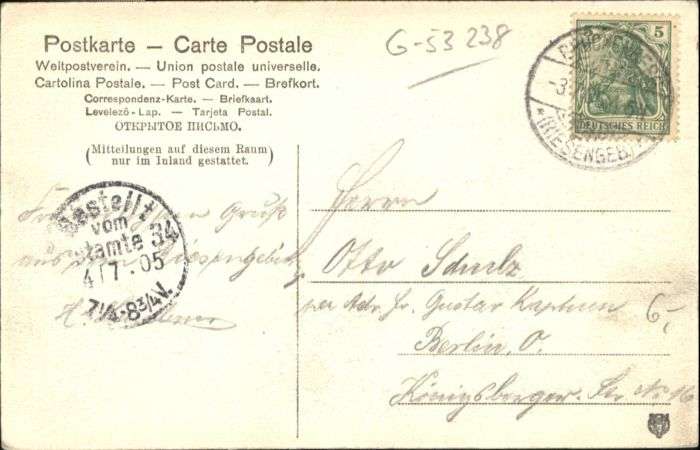 Postkarte — Carte Postale
Weltpostverein. — Union postale universelle.
Cartolina Postale. — Post Card. — Brefkort.
Correspondenz-Karte. — Briefkaart.
Levelező-Lap. — Tarjeta Postal.
ОТКРЫТОЕ ПИСЬМО.
(Mitteilungen auf diesem Raum
nur im Inland gestattet.)
G-53 238
5
DEUTSCHES REICH
(RIESENGEB.)
Bestellt
vom
Postamte 34
4/7.05
7 1/4-8 3/4 V.
Gruß
aus dem Riesengebirge
H.
Herrn
Otto Schulz
per Adr. Hr. Gustav
Berlin, O.
Königsberger-Str No 16
6,